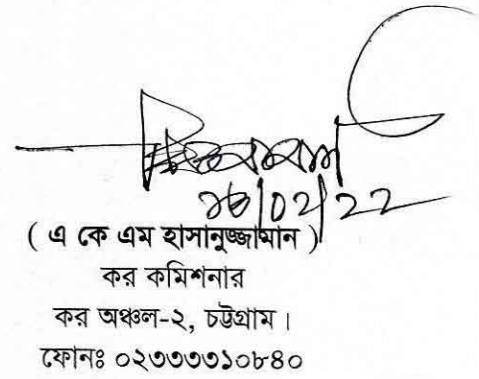 /02/22
( এ কে এম হাসানুজ্জামান )
কর কমিশনার
কর অঞ্চল-২, চট্টগ্রাম।
ফোনঃ ০২৩৩৩৩১০৮৪০